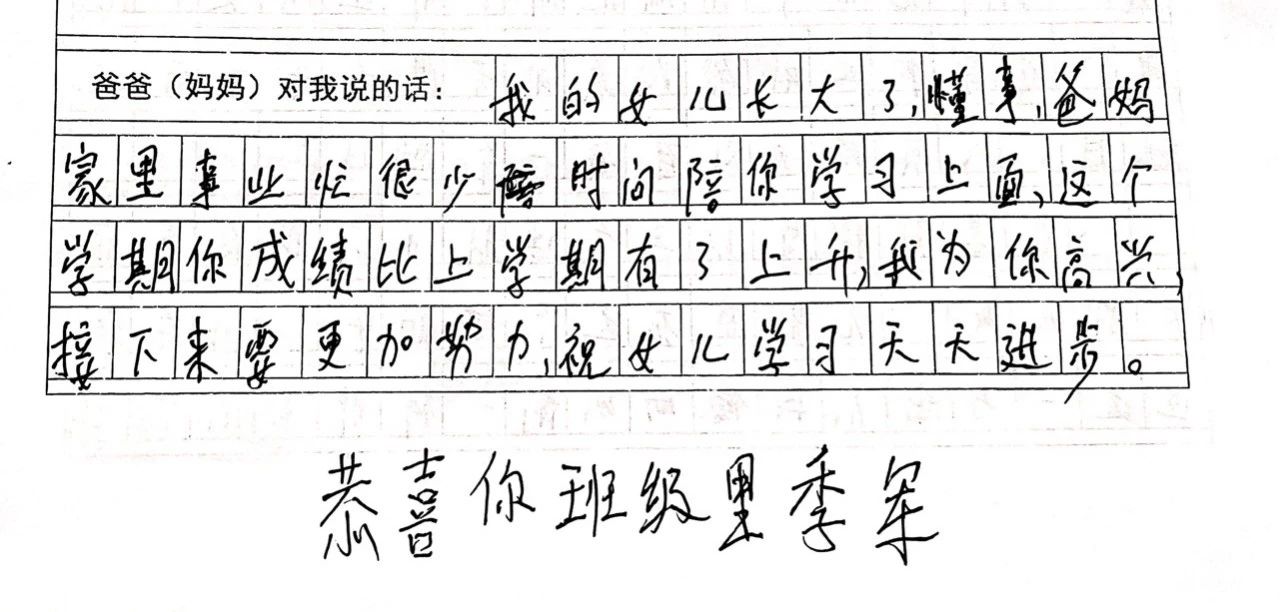 爸爸（妈妈）对我说的话：我的女儿长大了,懂事,爸妈
家里事业忙很少时间陪你学习上面,这个
学期你成绩比上学期有了上升,我为你高兴,
接下来要更加努力,祝女儿学习天天进步。
恭喜你班级里季军